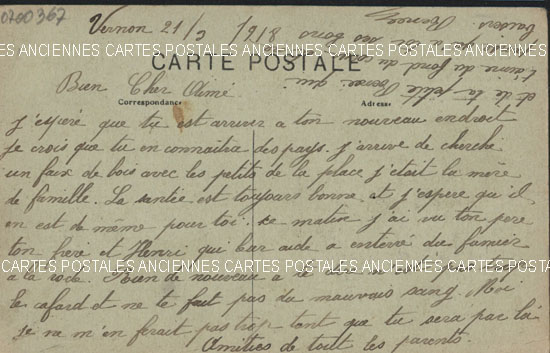 0700367
Vernon 21/3 1918
CARTES POSTALES ANCIENNES CARTES POSTALES ANCIENNES CARTES POSTALES ANCIENNES
CARTE POSTALE
Bien Cher Aimé
Correspondance Adresse
J'espère que tu est arriver a ton nouveau endroit
je crois que tu en connaitra des pays. J'arrive de cherche
un faix de bois avec les petits de la place j'était la mère
de famille. La santée est toujours bonne et j'espere qu'il
en est de même pour toi. Ce matin j'ai vu ton pere
ton frère et Henri qui a enlevé du fumier
CARTES POSTALES ANCIENNES CARTES POSTALES ANCIENNES CARTES POSTALES ANCIENNES
a la Rien de nouveau a te
le cafard et ne te fait pas du mauvais sang. Moi
je ne m'en ferait pas trop tant que tu sera pas là
Amitiés de tout les parents.
et de ta petite qui
t'aime du fond du coeur
nos bons
baisers